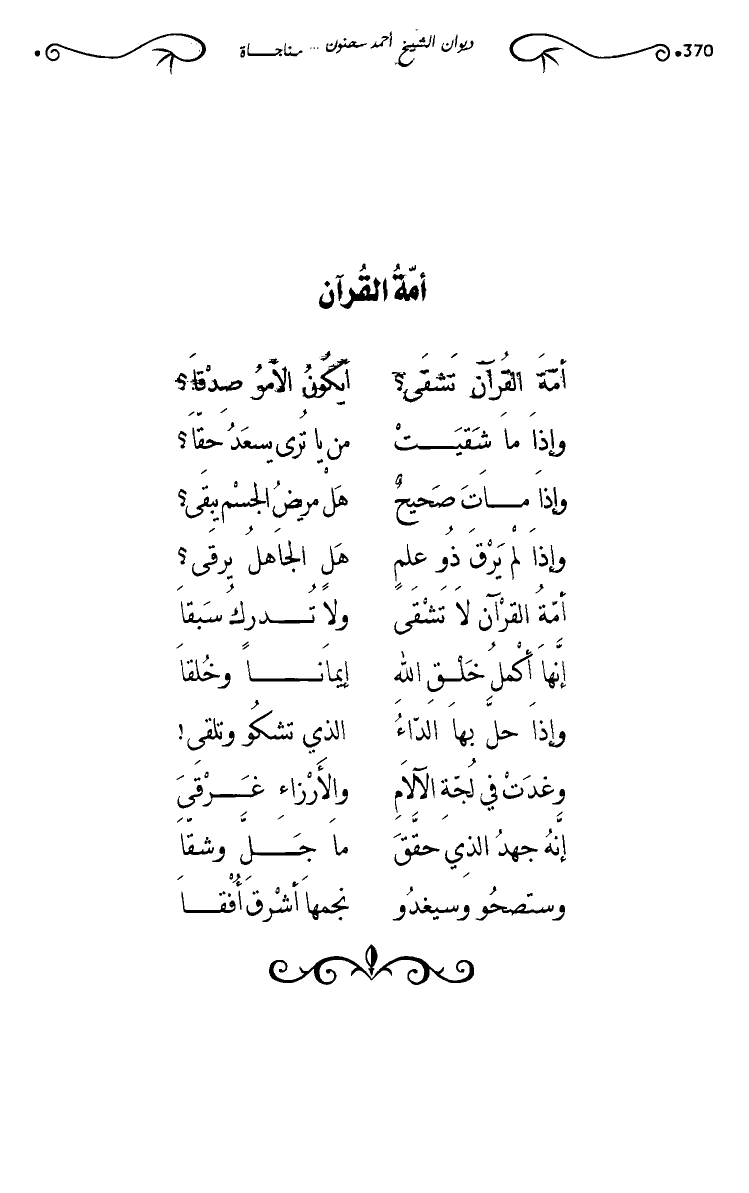 370 ديوان الشيخ أحمد سحنون ... مناجاة
أمّةُ القُرآن
أمّةَ القُرآنِ تَشقَى؟ أيَكُونُ الأمرُ صدْقاَ؟
وإذاَ ماَ شَقيَتْ من ياَ تُرى يسعَدُ حقّاَ؟
وإذاَ ماتَ صَحيحٌ هَلْ مريضُ الجسْم يبقَى؟
وإذاَ لمْ يَرْقَ ذُو علمٍ هَلِ الجاَهلُ يرقَى؟
أمّةُ القرْآن لاَ تَشْقَى ولاَ تُدركُ سَبقاَ
إنّهاَ أكْملُ خَلْقِ الله إيماَناً وخُلقاَ
وإذاَ حلَّ بهاَ الدّاءُ الذي تشكُو وتلقى!
وغدَتْ في لُجّةِ الآلاَمِ والأَرْزاءِ غَرْقَىَ
إنَّهُ جهدُ الذي حقَّقَ ماَ جَلَّ وشقّاَ
وستصحُو وَسيغدُو نجمهاَ أشْرقَ أُفْقاَ